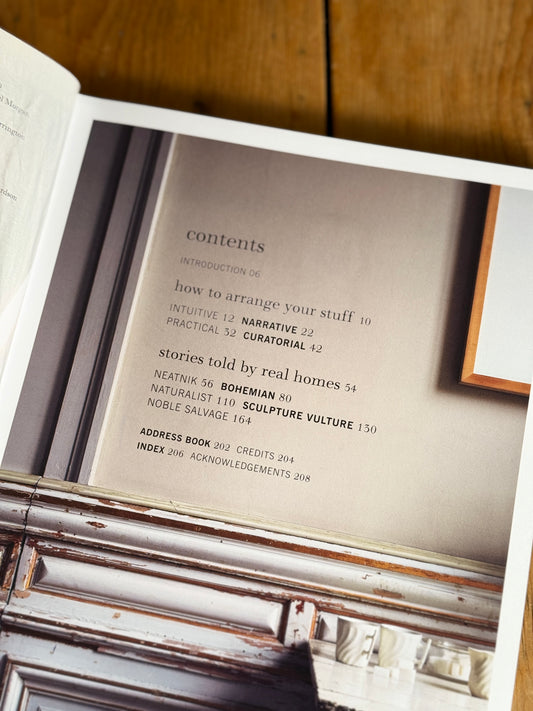 Morgan,
contents
INTRODUCTION 06
how to arrange your stuff 10
INTUITIVE 12 NARRATIVE 22
PRACTICAL 32 CURATORIAL 42
stories told by real homes 54
NEATNIK 56 BOHEMIAN 80
NATURALIST 110 SCULPTURE VULTURE 130
NOBLE SALVAGE 164
ADDRESS BOOK 202 CREDITS 204
INDEX 206 ACKNOWLEDGEMENTS 208